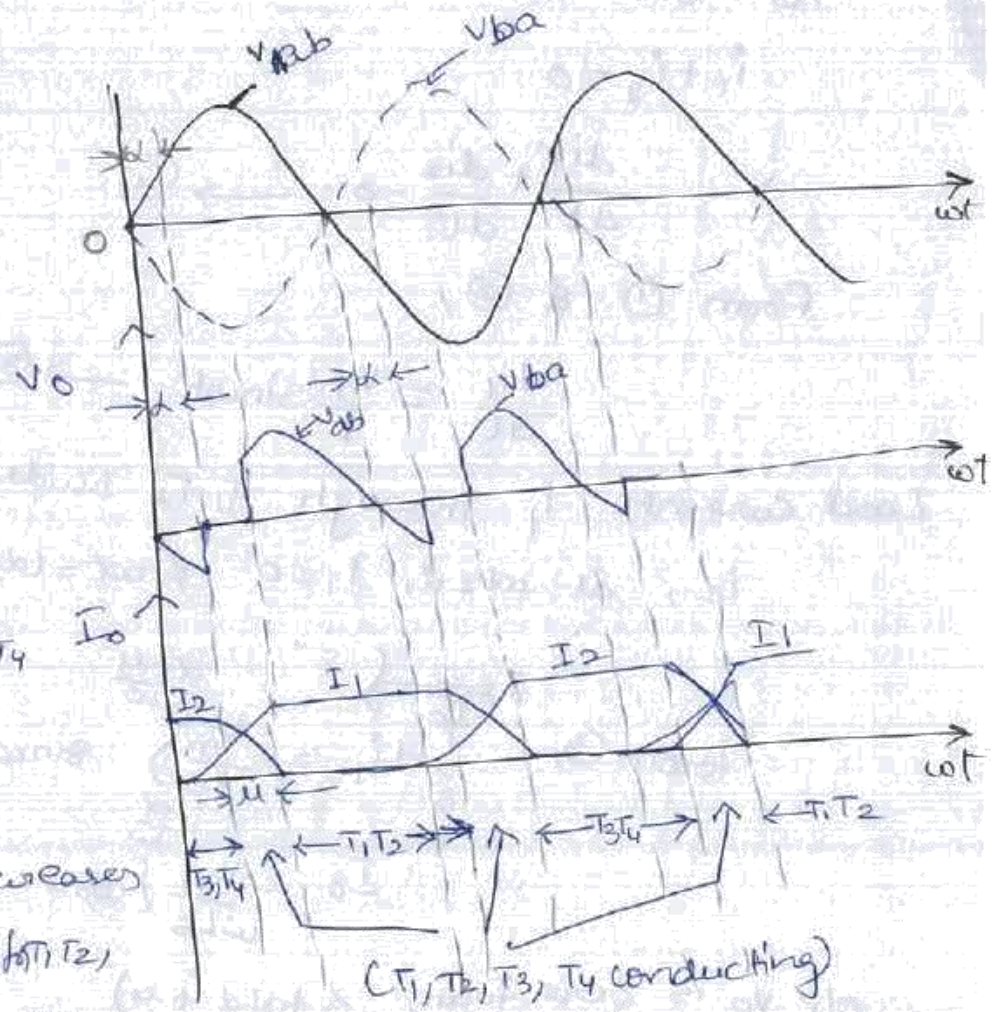 Vab
Vba
α
0
ωt
V0
α
α
Vab
Vba
ωt
T4
I0
I2
I1
I2
I1
μ
ωt
T3,T4
T1T2
T3T4
T1T2
creases
for T1T2,
(T1, T2, T3, T4 conducting)